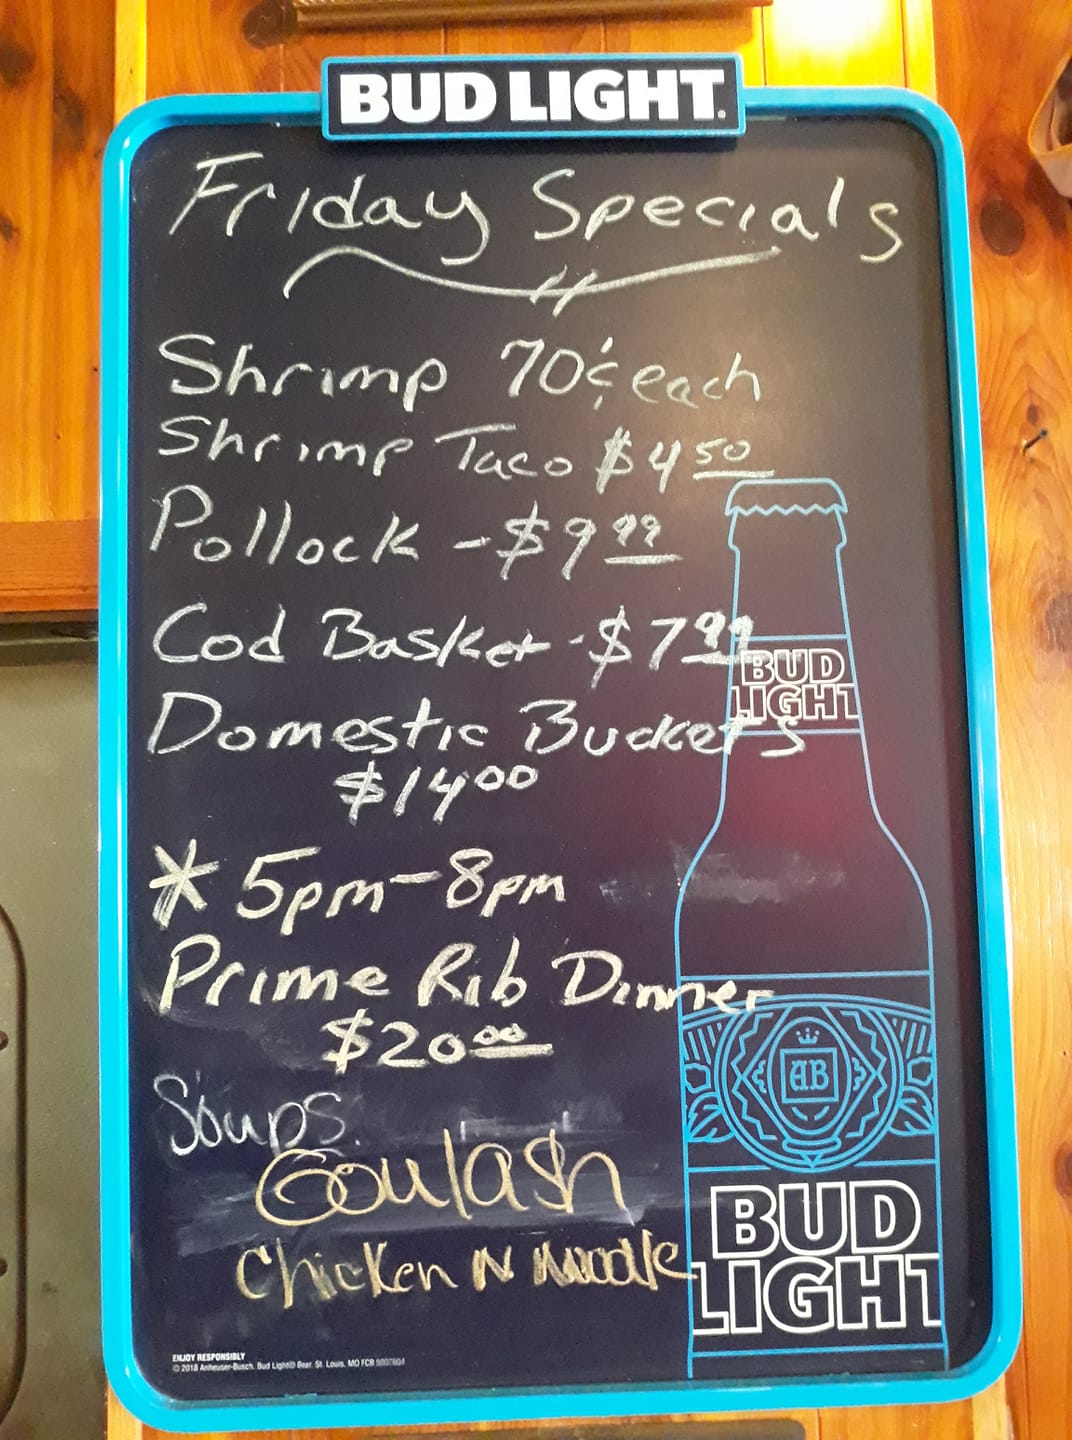 BUD LIGHT.
Friday Specials
Shrimp 70¢ each
Shrimp Taco $4 50
Pollock - $9 99
Cod Basket - $7 99
BUD
LIGHT
Domestic Buckets
$14 00
* 5pm - 8pm
Prime Rib Dinner
$20 00
AB
Soups.
Goulash
Chicken N Noodle
BUD
LIGHT
ENJOY RESPONSIBLY
© 2018 Anheuser-Busch, Bud Light® Beer, St. Louis, MO FCB